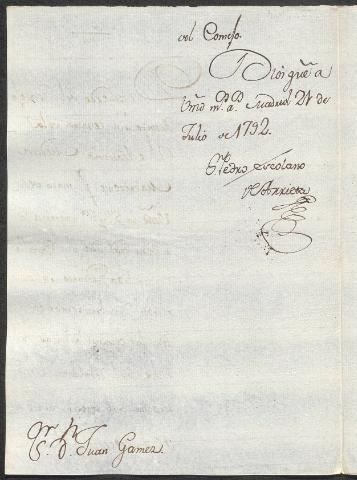 del Consejo.
Dios gue a
Vmd m.s a.s Madrid 21 de
Julio de 1792.
Pedro Escolano
de Arrieta
S.r D.n Juan Gamez.